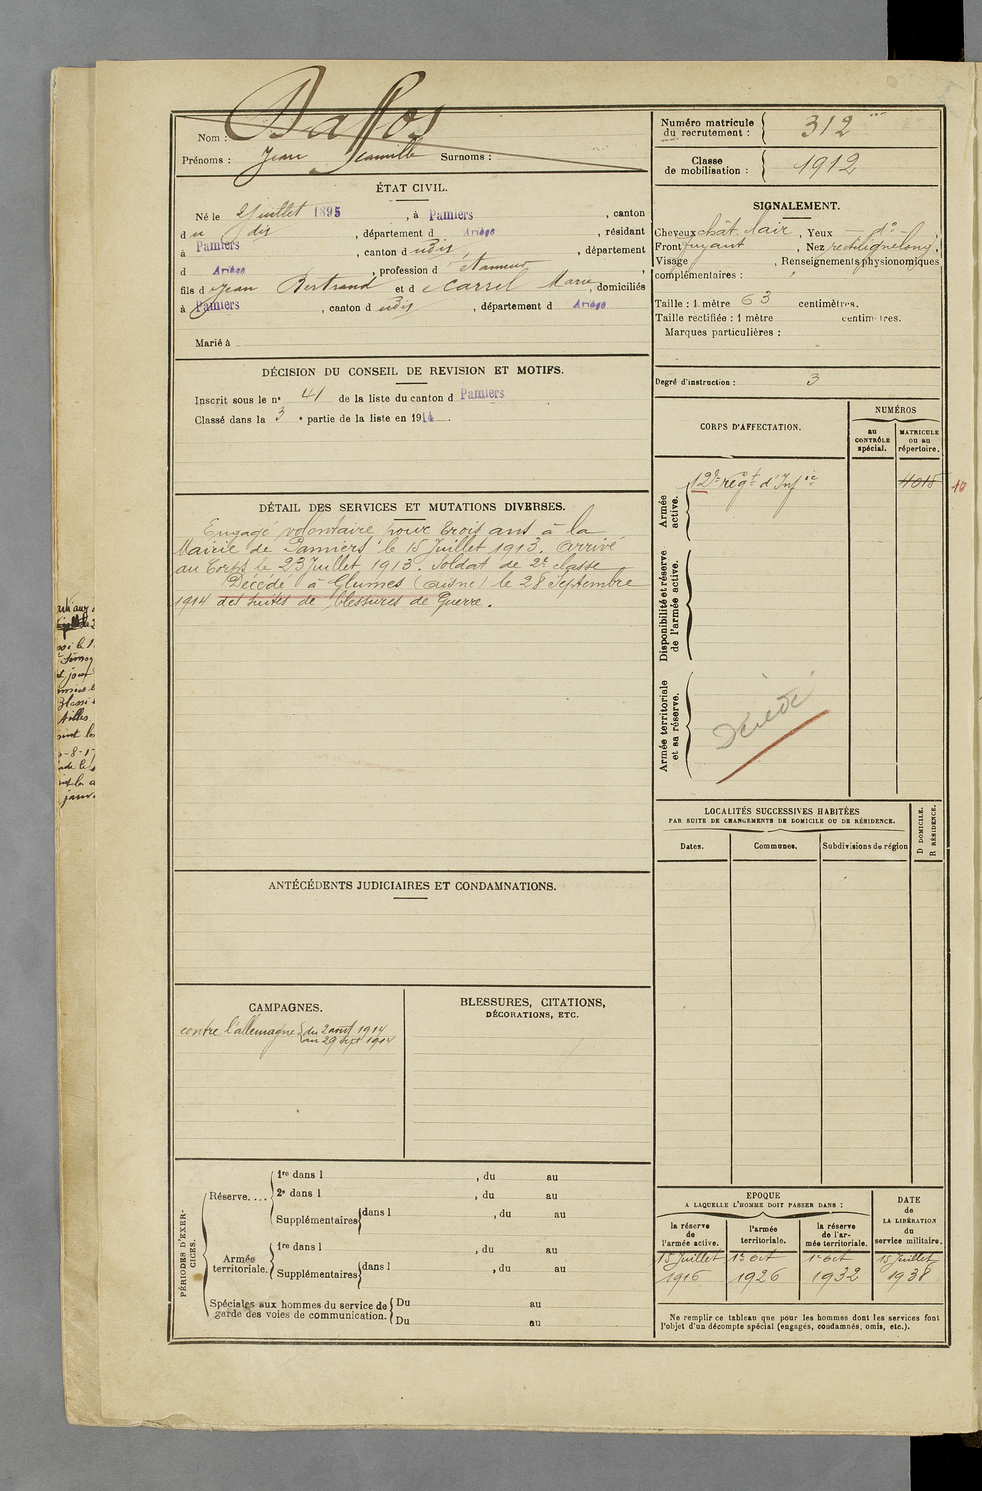 Nom : Daffos
Prénoms : Jean Camille Surnoms :
ÉTAT CIVIL.
Né le 2 Juillet 1895, à Pamiers, canton
d u dis, département d Ariège, résidant
à Pamiers, canton d udis, département
d Ariège, profession d Etameur,
fils d e Jean Bertrand et d e Carrel Marie, domiciliés
à Pamiers, canton d udis, département d Ariège
Marié à
DÉCISION DU CONSEIL DE REVISION ET MOTIFS.
Inscrit sous le nº 41 de la liste du canton d Pamiers
Classé dans la 3 e partie de la liste en 1914.
DÉTAIL DES SERVICES ET MUTATIONS DIVERSES.
Engagé volontaire pour trois ans à la
Mairie de Pamiers le 15 Juillet 1913. Arrivé
au Corps le 23 Juillet 1913. Soldat de 2e classe
Décédé à Glumes (Aisne) le 28 Septembre
1914 des suites de blessures de Guerre.
ANTÉCÉDENTS JUDICIAIRES ET CONDAMNATIONS.
CAMPAGNES.
contre l'allemagne { du 2 aout 1914
au 29 Sept 1914
BLESSURES, CITATIONS,
DÉCORATIONS, ETC.
PÉRIODES D'EXERCICES.
Réserve....
1re dans l , du au
2e dans l , du au
Supplémentaires { dans l , du au
Armée
territoriale.
1re dans l , du au
Supplémentaires { dans l , du au
Spéciales aux hommes du service de
garde des voies de communication.
Du au
Du au
Numéro matricule
du recrutement : 312
Classe
de mobilisation : 1912
SIGNALEMENT.
Cheveux chât. clair, Yeux - dº -,
Front fuyant, Nez rectiligne long,
Visage , Renseignements physionomiques
complémentaires :
Taille : 1 mètre 63 centimètres.
Taille rectifiée : 1 mètre centimètres.
Marques particulières :
Degré d'instruction : 3
CORPS D'AFFECTATION.
NUMÉROS
au
CONTRÔLE
spécial.
MATRICULE
ou au
répertoire.
Armée
active.
12e régt d'Infie
4015
10
Disponibilité et réserve
de l'armée active.
Armée territoriale
et sa réserve.
Décédé
LOCALITÉS SUCCESSIVES HABITÉES
PAR SUITE DE CHANGEMENTS DE DOMICILE OU DE RÉSIDENCE.
Dates.
Communes.
Subdivisions de région
D DOMICILE.
R RÉSIDENCE.
EPOQUE
A LAQUELLE L'HOMME DOIT PASSER DANS :
la réserve
de
l'armée active.
l'armée
territoriale.
la réserve
de l'ar-
mée territoriale.
DATE
de
LA LIBÉRATION
du
service militaire.
15 Juillet 1er oct 1er oct 15 Juillet
1916 1926 1932 1938
Ne remplir ce tableau que pour les hommes dont les services font
l'objet d'un décompte spécial (engagés, condamnés, omis, etc.).